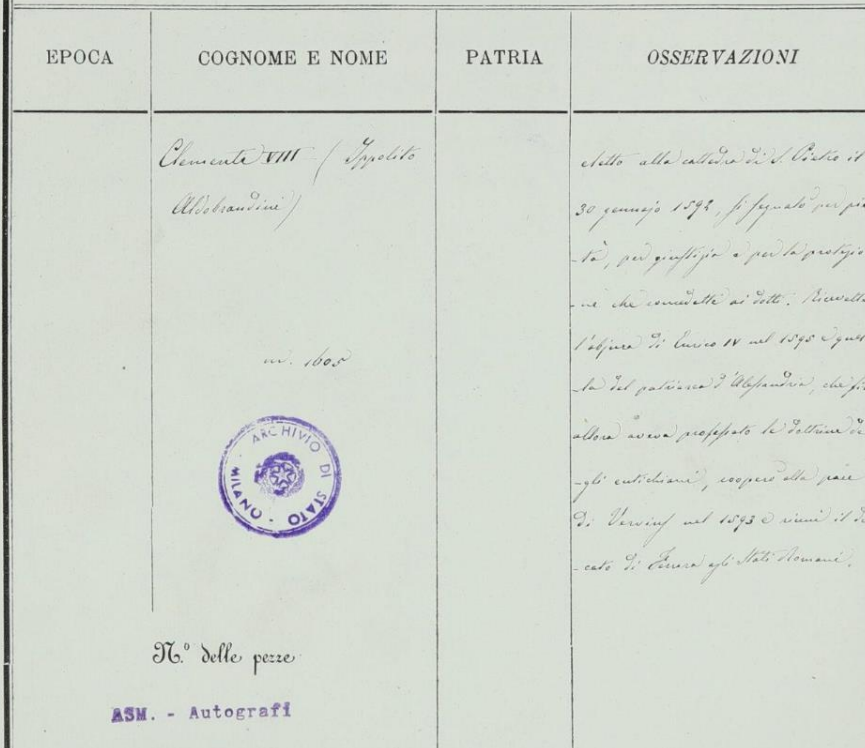 EPOCA
COGNOME E NOME
PATRIA
OSSERVAZIONI
Clemente VIII (Ippolito
Aldobrandini)
m. 1605
eletto alla cattedra di S. Pietro il
30 gennajo 1592, si segnalò per pie
-tà, per giustizia e per la protezio
-ne che concedette ai dotti. Ricevette
l'abjura di Enrico IV nel 1595 e quel
-la del patriarca d'Alessandria, che fin
allora aveva professato le dottrine de
-gli eutichiani, cooperò alla pace
di Vervins nel 1593 e riunì il du
-cato di Ferrara agli Stati Romani.
ARCHIVIO DI STATO - MILANO -
N.° delle pezze
ASM. - Autografi